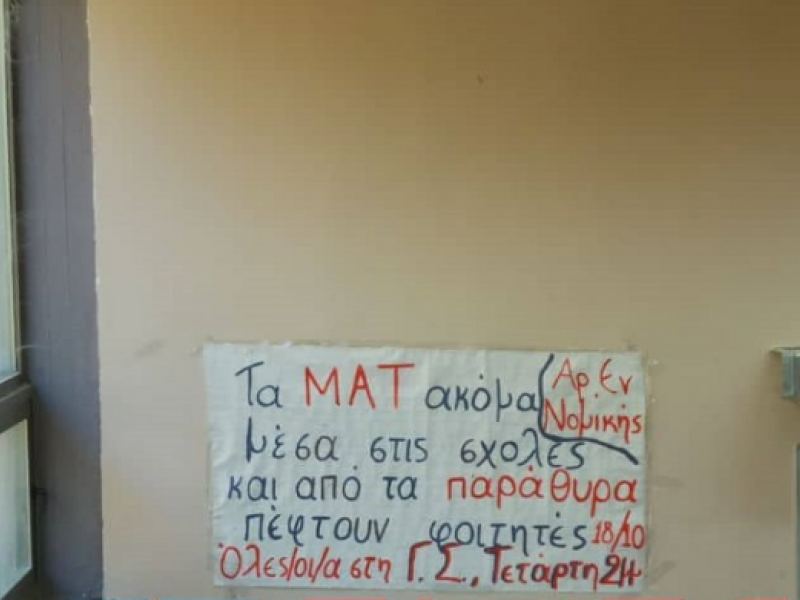 Τα ΜΑΤ ακόμα
Αρ.Εν
Νομικής
μέσα στις σχολές
και από τα παράθυρα
πέφτουν φοιτητές 18/10
Όλες/οι/α στη Γ.Σ., Τετάρτη 2μ